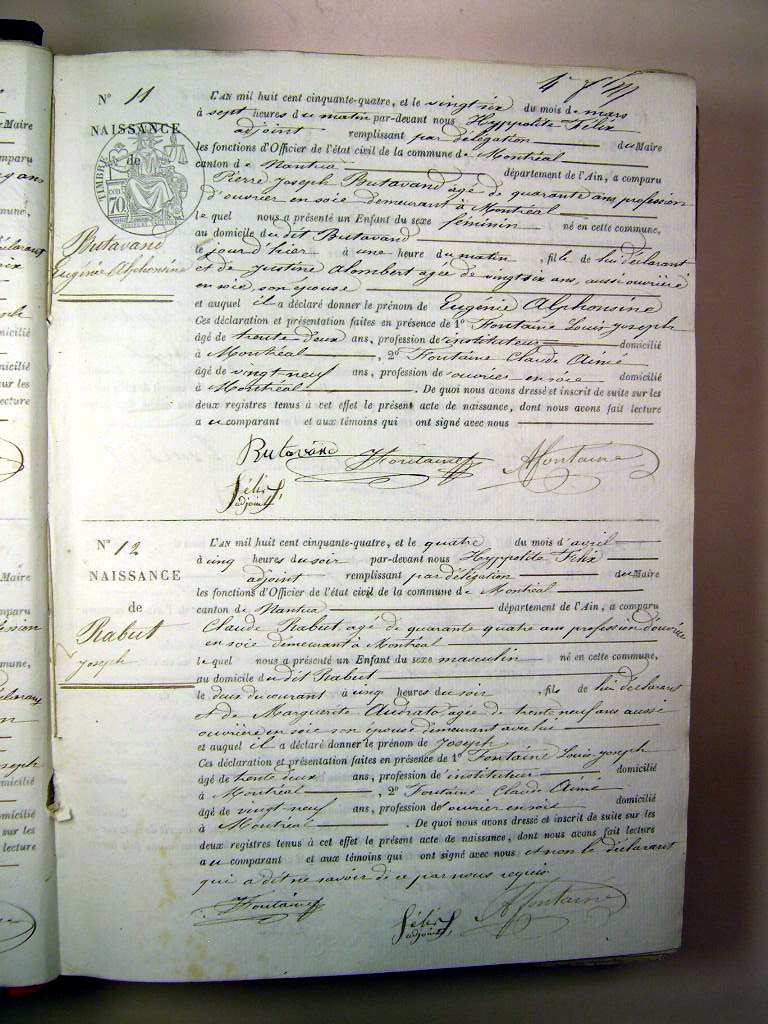 N° 11
NAISSANCE
de
TIMBRE
70
Butavand
Eugénie Alphonsine
L'AN mil huit cent cinquante-quatre, et le vingt six du mois de mars
à sept heures du matin par-devant nous Hyppolite Félix
adjoint remplissant par délégation du Maire
les fonctions d'Officier de l'état civil de la commune de Montréal
canton de Nantua département de l'Ain, a comparu
Pierre Joseph Butavand agé de quarante ans profession
d'ouvrier en soie demeurant à Montréal
le quel nous a présenté un Enfant du sexe féminin né en cette commune,
au domicile du dit Butavand
le jour d'hier à une heure du matin, fille de lui déclarant
et de Justine Alombert agée de vingt six ans, aussi ouvrière
en soie, son épouse
et auquel il a déclaré donner le prénom de Eugénie Alphonsine
Ces déclaration et présentation faites en présence de 1° Fontaine Louis Joseph
âgé de trente deux ans, profession de instituteur domicilié
à Montréal, 2° Fontaine Claude Aimé
âgé de vingt-neuf ans, profession de ouvrier en soie domicilié
à Montréal. De quoi nous avons dressé et inscrit de suite sur les
deux registres tenus à cet effet le présent acte de naissance, dont nous avons fait lecture
au comparant et aux témoins qui ont signé avec nous
Butavand Fontaine Afontaine
félix
adjoint
N° 12
NAISSANCE
de
Rabut
Joseph
L'AN mil huit cent cinquante-quatre, et le quatre du mois d'avril
à cinq heures du soir par-devant nous Hyppolite Félix
adjoint remplissant par délégation du Maire
les fonctions d'Officier de l'état civil de la commune de Montréal
canton de Nantua département de l'Ain, a comparu
Claude Rabut agé de quarante quatre ans profession d'ouvrier
en soie demeurant à Montréal
le quel nous a présenté un Enfant du sexe masculin né en cette commune,
au domicile du dit Rabut
le deux du courant à cinq heures du soir, fils de lui déclarant
et de Marguerite Audrato agée de trente neuf ans aussi
ouvrière en soie son épouse demeurant avec lui
et auquel il a déclaré donner le prénom de Joseph
Ces déclaration et présentation faites en présence de 1° Fontaine Louis Joseph
âgé de trente deux ans, profession de instituteur domicilié
à Montréal, 2° Fontaine Claude Aimé
âgé de vingt-neuf ans, profession de ouvrier en soie domicilié
à Montréal. De quoi nous avons dressé et inscrit de suite sur les
deux registres tenus à cet effet le présent acte de naissance, dont nous avons fait lecture
au comparant et aux témoins qui ont signé avec nous et non le déclarant
qui a dit ne savoir de ce par nous requis
Fontaine félix Afontaine
adjoint